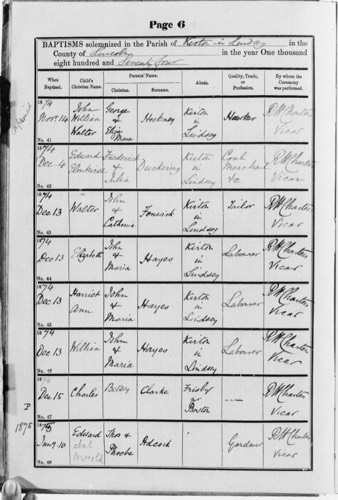 Page 6
BAPTISMS solemnized in the Parish of Kirton in Lindsey in the
County of Lincoln in the year One thousand
eight hundred and Seventy Four
When Baptized. Child's Christian Name. Parents' Name. Christian. Surname. Abode. Quality, Trade, or Profession. By whom the Ceremony was performed.
1874 Novr 14 No. 41 John William Walter George & Eliza Hockney Kirton in Lindsey Hawker RW Charteris Vicar
1874 Dec. 4 No. 42 Edward Frederick & Julia Duckering Kirton in Lindsey Coal Merchant &c RW Charteris Vicar
1874 Dec 13 No. 43 Walter John & Catherine Kirton in Lindsey Tailor RW Charteris Vicar
1874 Dec 13 No. 44 Elizabeth John & Maria Hayes Kirton in Lindsey Labourer RW Charteris Vicar
1874 Dec 13 No. 45 Harriet Ann John & Maria Hayes Kirton in Lindsey Labourer RW Charteris Vicar
1874 Dec 13 No. 46 William John & Maria Hayes Kirton in Lindsey Labourer RW Charteris Vicar
1874 Dec 15 No. 47 Charles Betsey Clarke Frisby Boston — RW Charteris Vicar
1875
1875 Jany 10 No. 48 Edward Thos & Phoebe Adcock Gardner RW Charteris Vicar